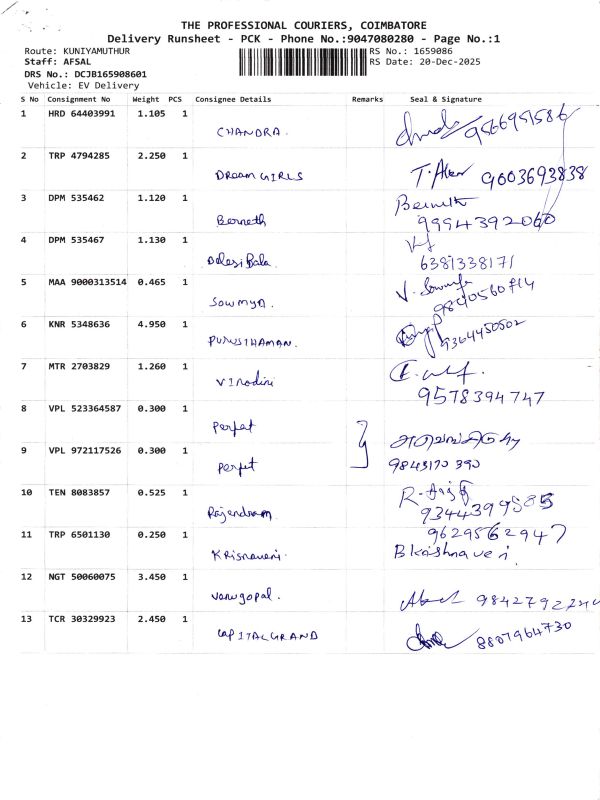 THE PROFESSIONAL COURIERS, COIMBATORE
Delivery Runsheet - PCK - Phone No.:9047080280 - Page No.:1
Route: KUNIYAMUTHUR RS No.: 1659086
Staff: AFSAL RS Date: 20-Dec-2025
DRS No.: DCJB165908601
Vehicle: EV Delivery
S No Consignment No Weight PCS Consignee Details Remarks Seal & Signature
1 HRD 64403991 1.105 1
CHANDRA. 9566951586
2 TRP 4794285 2.250 1
DREAM GIRLS 9003693838
3 DPM 535462 1.120 1
Berneth 9994392060
4 DPM 535467 1.130 1
Bala 6381338171
5 MAA 9000313514 0.465 1
SOWMYA. 9840560714
6 KNR 5348636 4.950 1
PURUSTHAMAN. 9364450502
7 MTR 2703829 1.260 1
VINodini 9578394747
8 VPL 523364587 0.300 1
Perfet
9 VPL 972117526 0.300 1
Perfet 9843170390
10 TEN 8083857 0.525 1
Rajendram 9344399585
11 TRP 6501130 0.250 1 9629562947
Krisnaveni. B krishnaveni.
12 NGT 50060075 3.450 1
Venugopal.
13 TCR 30329923 2.450 1
CAPITAL GRAND 8807964730